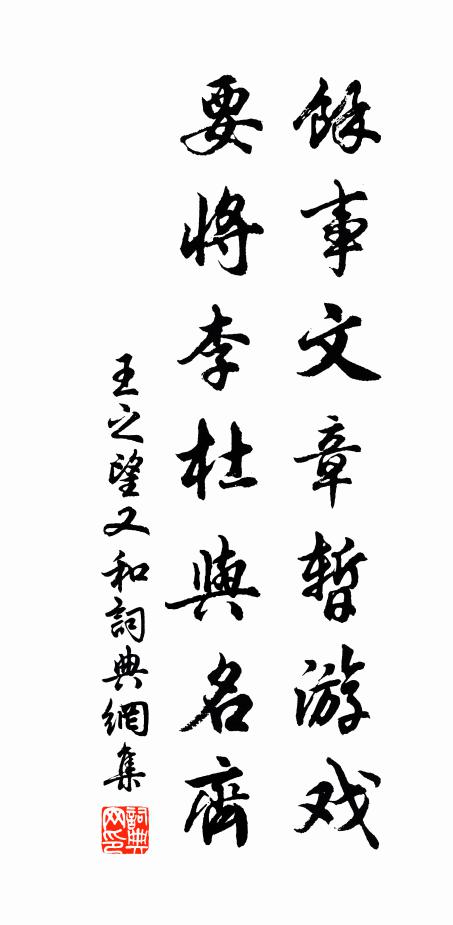 餘事文章暫游戏
要將李杜與名齊
王之望又和詞典網集
詞典网印